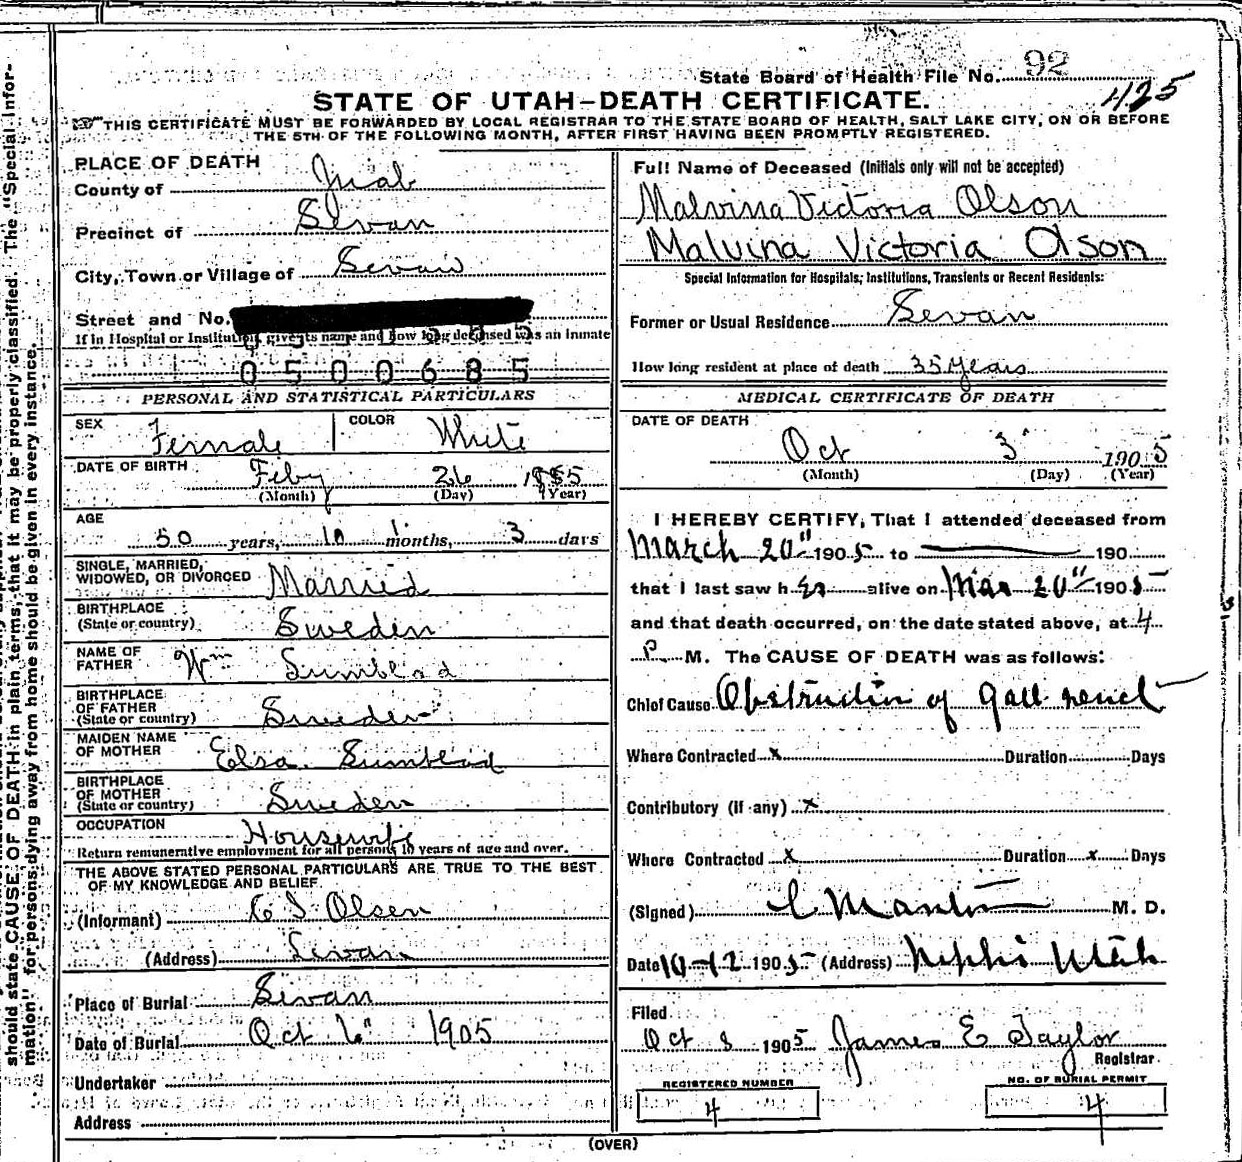 State Board of Health File No. 92
425
STATE OF UTAH—DEATH CERTIFICATE.
THIS CERTIFICATE MUST BE FORWARDED BY LOCAL REGISTRAR TO THE STATE BOARD OF HEALTH, SALT LAKE CITY, ON OR BEFORE
THE 5TH OF THE FOLLOWING MONTH, AFTER FIRST HAVING BEEN PROMPTLY REGISTERED.
should state CAUSE OF DEATH in plain terms, that it may be properly classified. The "Special Infor-
mation" for persons dying away from home should be given in every instance.
PLACE OF DEATH
County of Juab
Precinct of Levan
City, Town or Village of Levan
Street and No.
If in Hospital or Institution, give its name and how long deceased was an inmate
0500685
PERSONAL AND STATISTICAL PARTICULARS
SEX Female COLOR White
DATE OF BIRTH Feby 26 1855
(Month) (Day) (Year)
AGE
50 years, 10 months, 3 days
SINGLE, MARRIED,
WIDOWED, OR DIVORCED Married
BIRTHPLACE
(State or country) Sweden
NAME OF
FATHER Wm Sumblad
BIRTHPLACE
OF FATHER
(State or country) Sweden
MAIDEN NAME
OF MOTHER Elsa Sumblad
BIRTHPLACE
OF MOTHER
(State or country) Sweden
OCCUPATION Housewife
Return remunerative employment for all persons 10 years of age and over.
THE ABOVE STATED PERSONAL PARTICULARS ARE TRUE TO THE BEST
OF MY KNOWLEDGE AND BELIEF.
(Informant) Olsen
(Address) Levan
Place of Burial Levan
Date of Burial Oct 6" 1905
Undertaker
Address
Full Name of Deceased (Initials only will not be accepted)
Malvina Victoria Olson
Malvina Victoria Olson
Special Information for Hospitals, Institutions, Transients or Recent Residents:
Former or Usual Residence Levan
How long resident at place of death 35 Years
MEDICAL CERTIFICATE OF DEATH
DATE OF DEATH
Oct 3 1905
(Month) (Day) (Year)
I HEREBY CERTIFY, That I attended deceased from
March 20" 1905 to 190
that I last saw her alive on Mar 20" 1905
and that death occurred, on the date stated above, at 4
P. M. The CAUSE OF DEATH was as follows:
Chief Cause Obstruction of gall
Where Contracted x Duration Days
Contributory (if any) x
Where Contracted x Duration x Days
(Signed) M. D.
Date 10-12 1905 (Address) Nephi Utah
Filed
Oct 8 1905 James E Taylor
Registrar
REGISTERED NUMBER
4
NO. OF BURIAL PERMIT
4
(OVER)